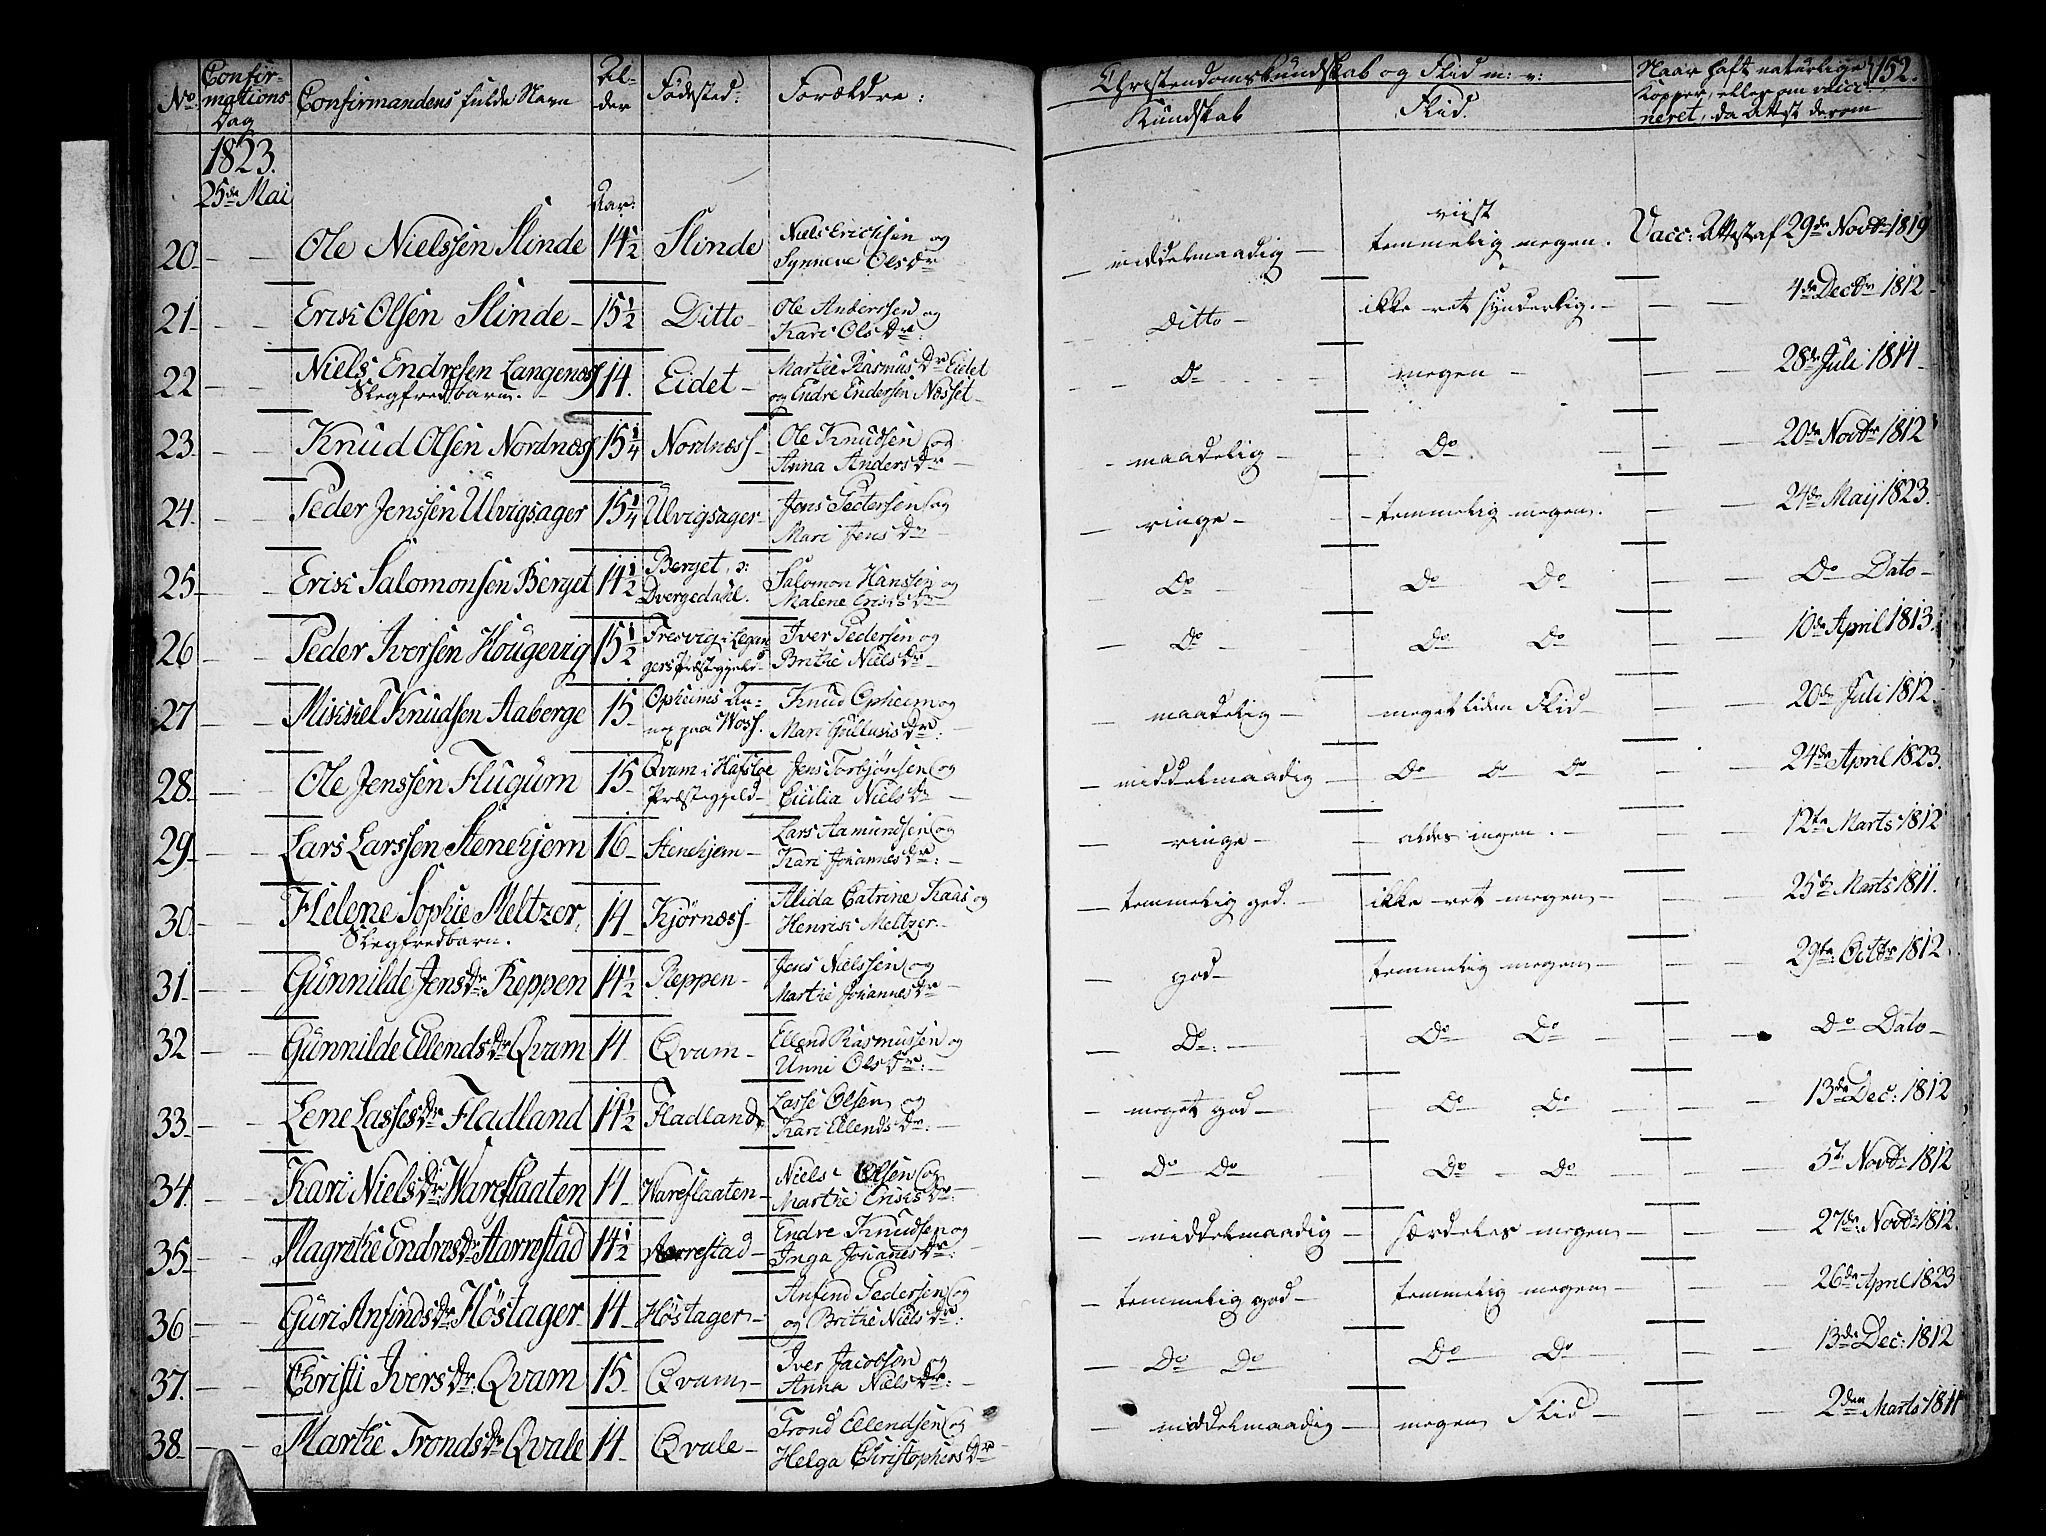 No Confirmations Dag Confirmandens fulde Navn Alder Fødested: Forældre: Christendomskundskab og Flid m: v: Naar haft naturlige 152.
Kundskab Flid. Kopper, eller om vaccineret, da Attst derom
1823.
25de Mai Aar:
20 Ole Nielssen Slinde 14½ Slinde Niels Erichsen og Synneve Olsdr middelmaadig viist temmelig megen. Vacc: Attest af 29de Novbr 1819
21 Erik Olsen Slinde 15½ Ditto Ole Anderssen og Kari Olsdr Ditto ikke ret synderlig. 4de Decbr 1812
22 Niels Endresen Langenæs Slegfredbarn. 14. Eidet Marthe Rasmusdr Eidet og Endre Endersen Næsset Do megen 28de Juli 1814
23. Knud Olsen Nordnæs 15¼ Nordnæss Ole Knudsen og Anna Andersdr maadelig Do. 20de Novbr 1812
24. Peder Jenssen Ulvigsager 15¼ Ulvigsager Jens Pedersen og Mari Jensdr ringe temmelig megen. 24de Maij 1823.
25 Erik Salomonsen Berget 14½ Berget, o: Dvergedahl. Salomon Hanssen og Malene Eriksdr Do Do Do Do Dato
26 Peder Iversen Hougevig 15½ Fresvig i Legangers Præstegjeld Iver Pedersen og Brithe Nielsdr Do Do Do 10de April 1813.
27 Mikkel Knudsen Aaberge 15 Opheims Annex paa Woss. Knud Opheim og Mari Gullaksdr: maadelig meget liden Flid 20de Juli 1812.
28. Ole Jenssen Flugum 15 Qvam i Hafsloe Præstegjeld Jens Torbjønsen og Cicilia Nielsdr middelmaadig Do Do Do 24de April 1823.
29. Lars Larssen Stenehjem 16 Stenehjem Lars Aamundsen og Kari Johannesdr: ringe aldes ingen. 12te Marts 1812
30. Helene Sophie Meltzer, Slegfredbarn. 14 Kjørnæss Alida Catrine Kaas og Henrik Meltzer. temmelig god. ikke ret megen 25de Marts 1811.
31. Gunnilde Jensdr Reppen 14½ Reppen Jens Nielssen og Marthe Johannesdr god temmelig megen 29te Octbr 1812.
32 Gunnilde Ellendsdr Qvam 14 Qvam Ellend Rasmussen og Unni Olsdr: Do: Do Do Do Dato
33. Lene Lassesdr Fladland 14½ Fladland Lasse Olsen og Kari Ellendsdr: meget god Do Do 13de Dec: 1812
34. Kari Nielsdr Wareflaaten 14 Wareflaaten Niels Olsen og Marthe Eriksdr: Do Do Do Do 5te Novbr 1812
35. Magrethe Endresdr Aarrestad 14½ Aarrestad Endre Knudsen og Inga Johanesdr: middelmaadig særdeles megen 27de Novbr 1812.
36 Guri Anfindsdr Høstager 14 Høstager Anfind Pedersen og og Brithe Nielsdr: temmelig god temmelig megen 26de April 1823
37. Christi Iversdr: Qvam 15 Qvam Iver Jacobson og Anna Nielsdr: Do Do Do Do 13de Dec: 1812
38. Marthe Trondsdr Qvale 14 Qvale Trond Ellendsen og Helga Christophersdr middelmaadig megen Flid 2den Marts 1811